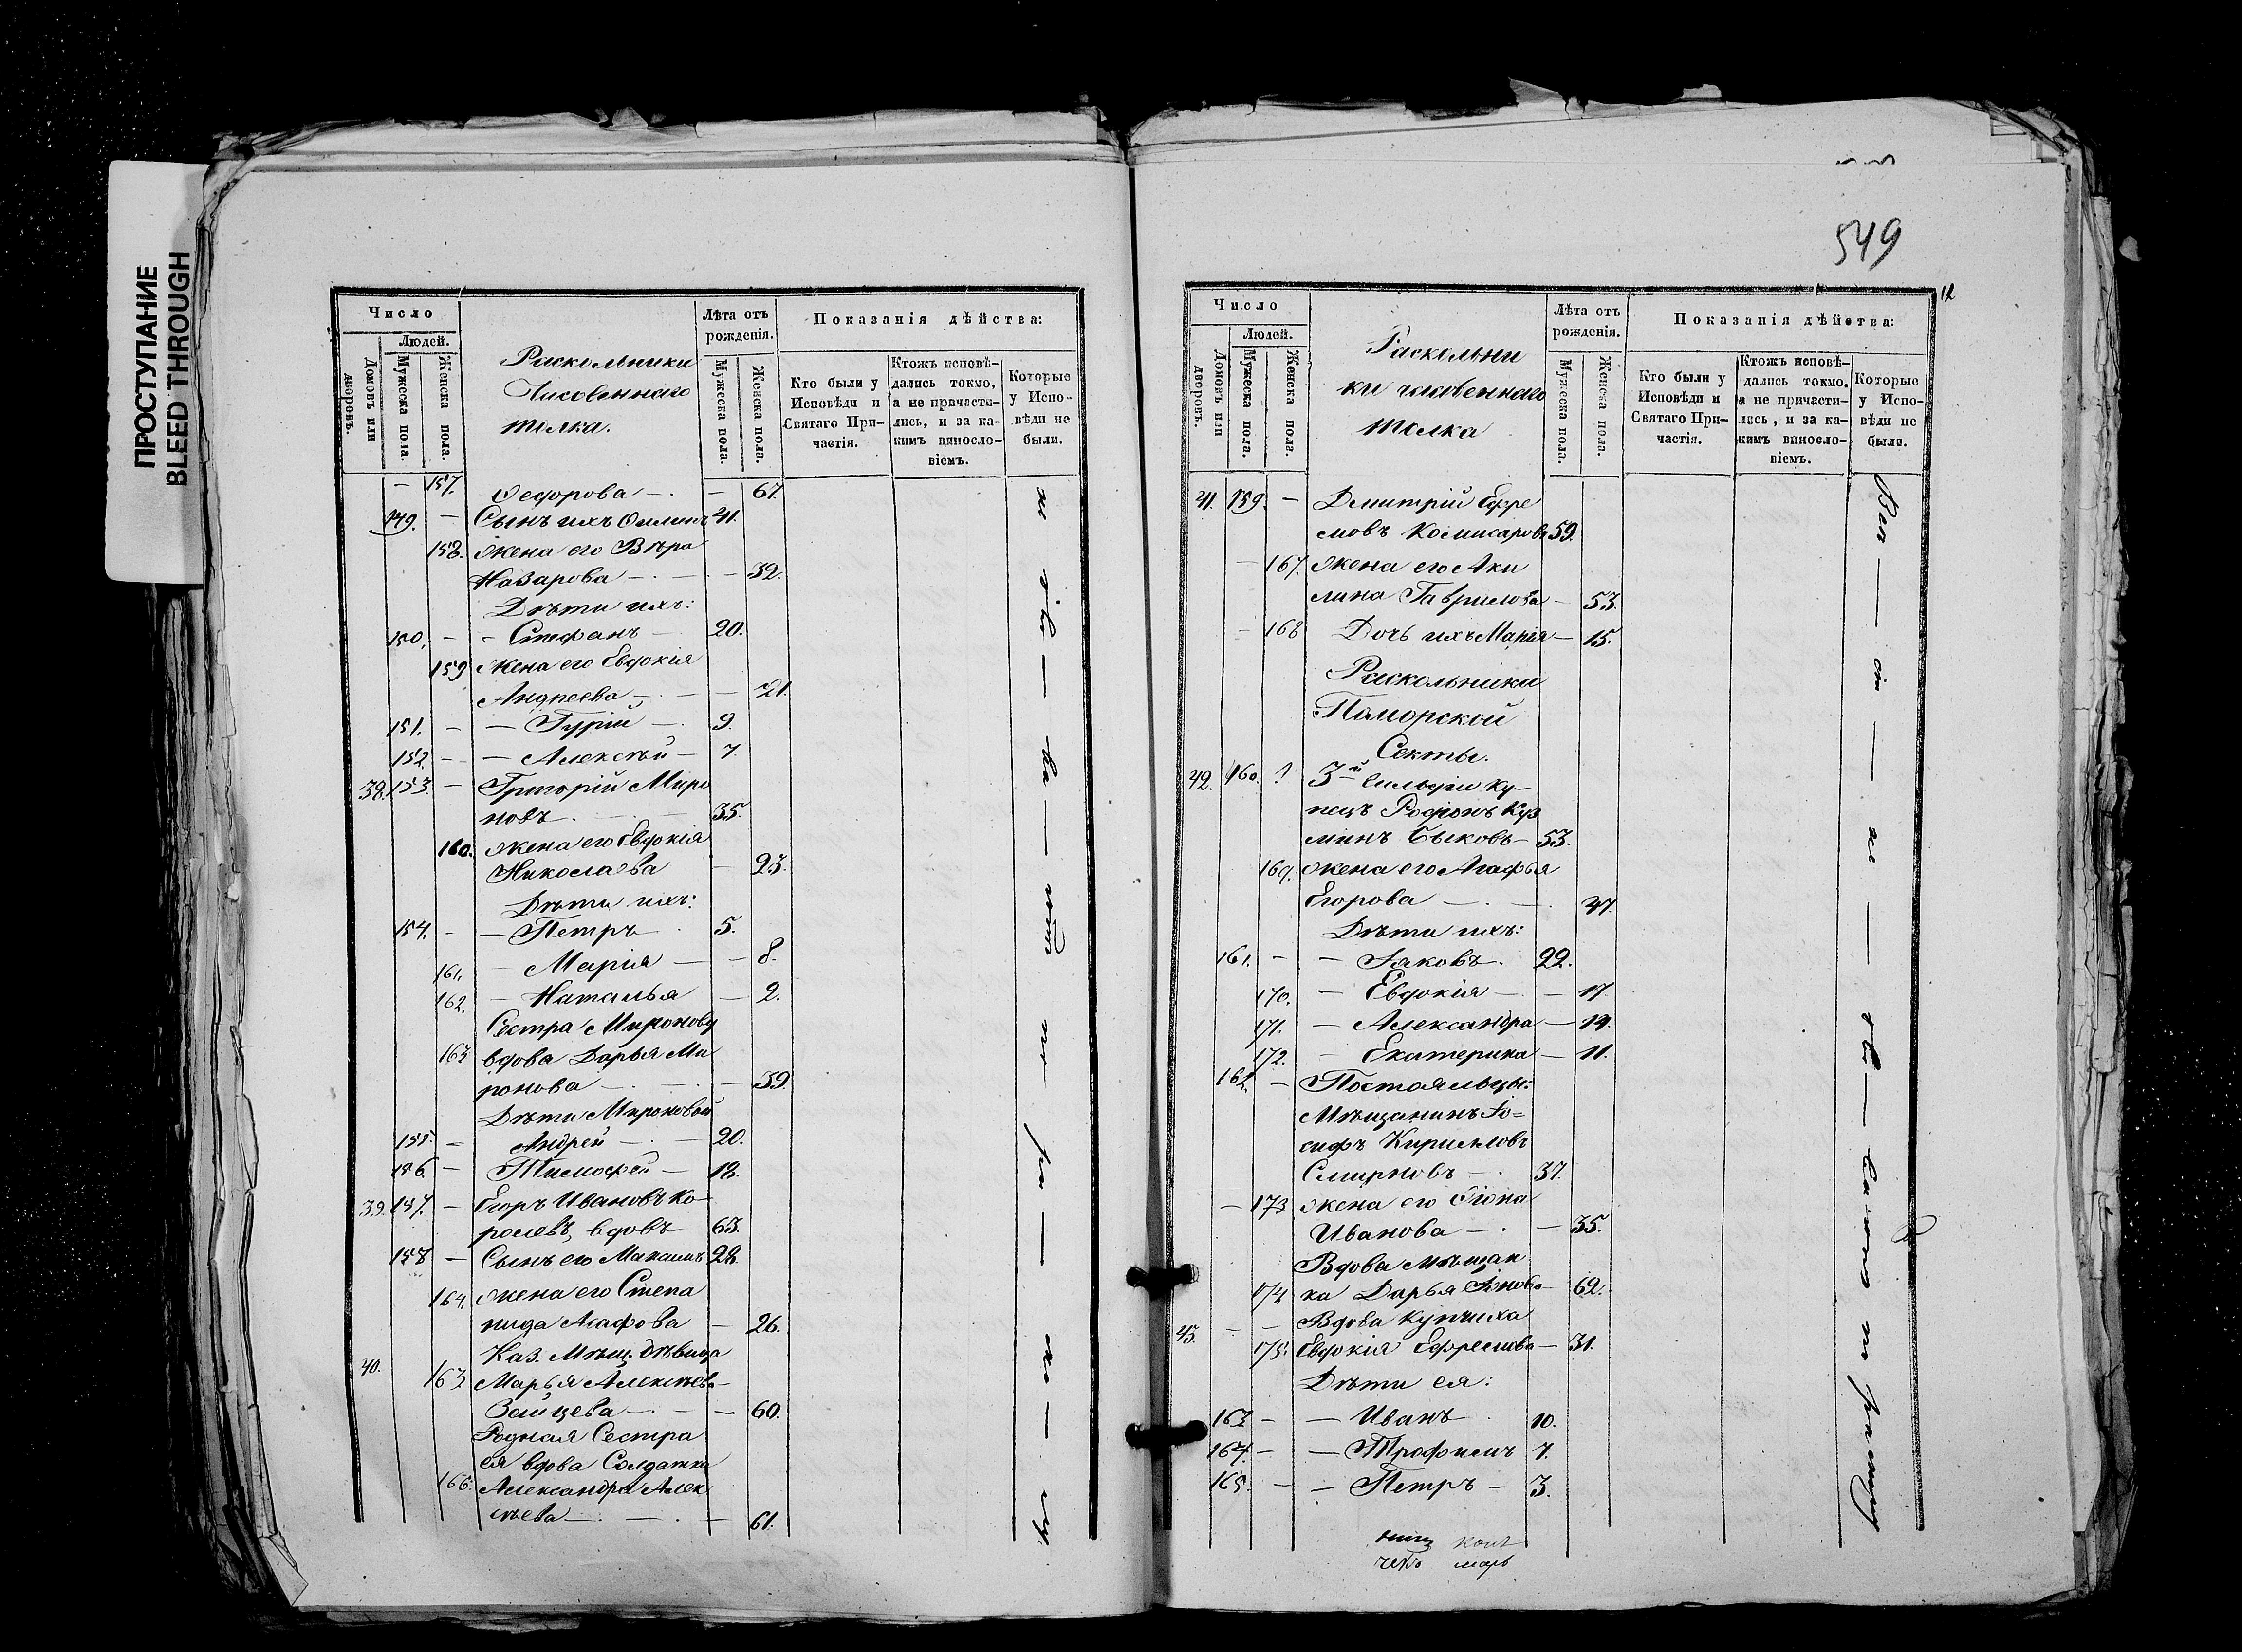 ПРОСТУПАНИЕ
BLEED THROUGH
Число
Людей.
Домовъ или дворовъ.
Мужеска пола.
Женска пола.
Раскольники
Часовеннаго
толка.
Лѣта отъ
рожденія.
Мужеска пола.
Женска пола.
Показанія дѣйства:
Кто были у
Исповѣди и
Святаго При-
частія.
Ктожъ исповѣ-
дались токмо,
а не причасти-
лись, и за ка-
кимъ винносло-
віемъ.
Которые
у Испо-
вѣди не
были.
— 157. Ѳедорова — 67.
149. — Сынъ ихъ 41.
158. жена его Вѣра
Назарова — 32.
Дѣти ихъ:
150. — Стефанъ 20.
159 жена его Евдокія
Андреева — 21.
151. — Гурій — 9.
152. — Алексѣй — 7.
38. 153. — Григорій Миро
новъ 35.
160. жена его Евдокія
Николаева — 23.
Дѣти ихъ:
154. — Петръ 5.
161. — Марія — 8.
162. — Наталья — 2.
Сестра Миронову
163 вдова Дарья Ми
ронова — 39.
Дѣти Мироновой
155. — Андрей — 20.
156. — Тимофей — 12.
39. 157. — Егоръ Ивановъ Ко-
ролевъ, вдовъ 63.
158 — Сынъ его Максимъ 28.
164. жена его Степа
нида Агафова — 26.
Каз. Мѣщ. дѣвица
40. 163 Марья Алексѣева
Зайцева — 60.
Родная Сестра
ея вдова Солдатка
166. Александра Алек
сѣева — 61.
549
12
Число
Людей.
Домовъ или дворовъ.
Мужеска пола.
Женска пола.
Раскольни
ки часовеннаго
толка
Лѣта отъ
рожденія.
Мужеска пола.
Женска пола.
Показанія дѣйства:
Кто были у
Исповѣди и
Святаго При-
частія.
Ктожъ исповѣ-
дались токмо,
а не причасти-
лись, и за ка-
кимъ винносло-
віемъ.
Которые
у Испо-
вѣди не
были.
41. 159. — Дмитрій Ефре
мовъ Комисаровъ 59.
— 167. жена его Аки
лина Гаврилова — 53.
— 168 Дочь ихъ Марія — 15.
Раскольники
Поморской
Секты.
42. 160. 3й Гильдіи Ку-
пецъ Родіонъ Куз
минъ Быковъ — 53.
169. жена его Агафья
Егорова — 47.
Дѣти ихъ:
161. — — Іаковъ 22.
170. — Евдокія — 17.
171. — Александра — 14.
172. — Екатерина — 11.
162. — Постояльцы:
Мѣщанинъ Іо-
сифъ Кирилловъ
Смирновъ — 37.
— 173 жена его
Иванова — 35.
Вдова мѣщан
174 ка Дарья 62.
Вдова Купчиха
175. Евдокія Ефремова — 31.
Дѣти ея:
163 — — Иванъ 10.
164. — — Трофимъ 7.
165. — — Петръ — 3.